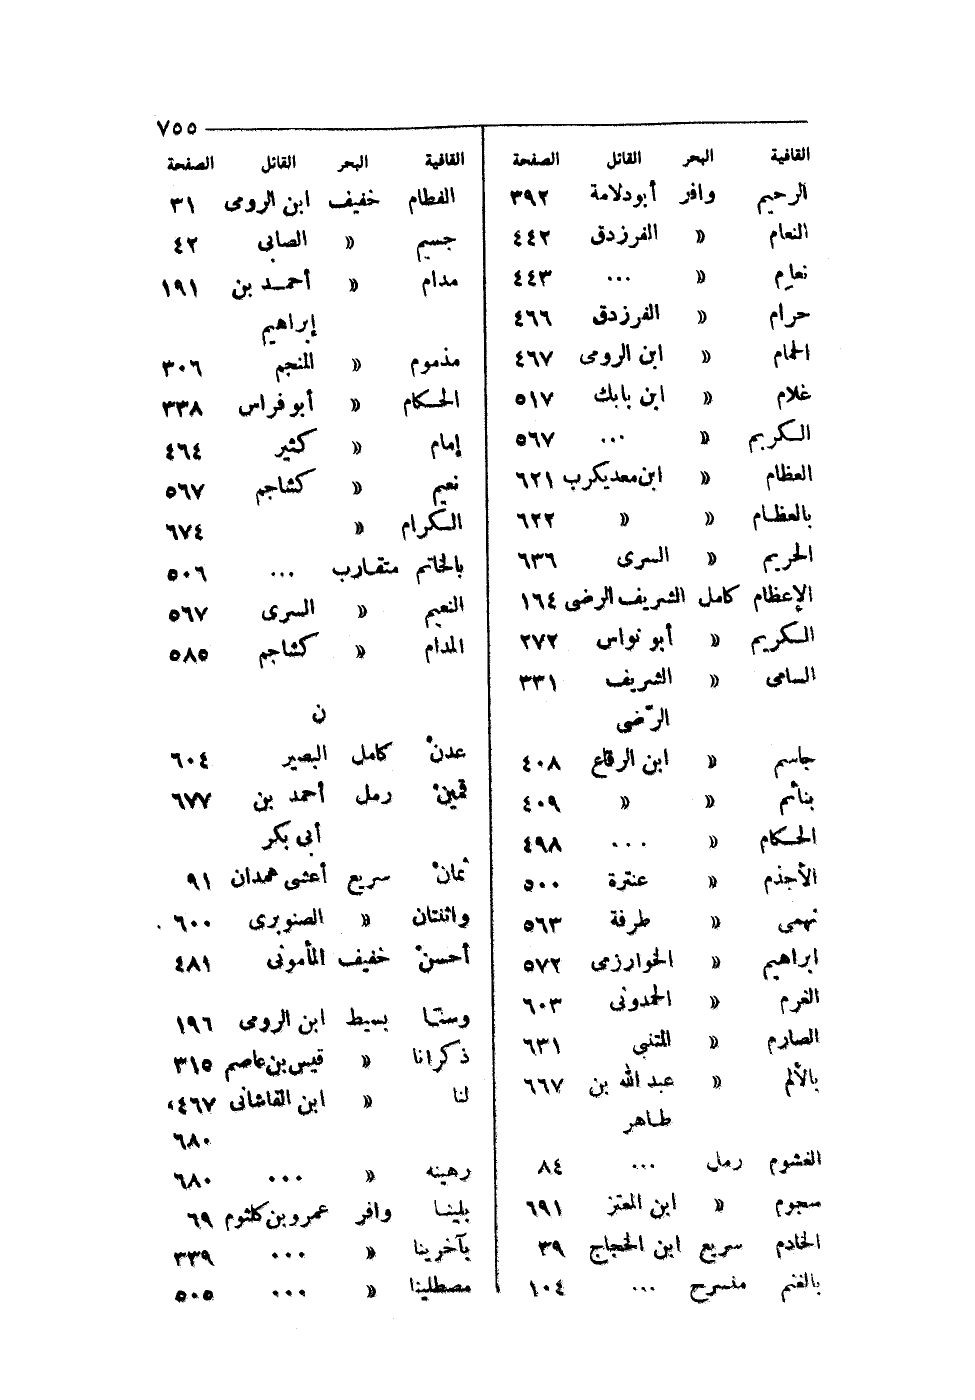 ٧٥٥
القافية البحر القائل الصفحة
الرحيم وافر أبودلامة ٣٩٢
النعام « الفرزدق ٤٤٢
نعام « ... ٤٤٣
حرام « الفرزدق ٤٦٦
الحمام « ابن الرومى ٤٦٧
غلام « ابن بابك ٥١٧
الكريم « ... ٥٦٧
العظام « ابن معديكرب ٦٢١
بالعظام « « ٦٢٢
الحريم « السرى ٦٣٦
الإعظام كامل الشريف الرضى ١٦٤
الكريم « أبو نواس ٢٧٢
السامى « الشريف ٣٣١
الرّضى
جاسم « ابن الرقاع ٤٠٨
بنائم « « ٤٠٩
الحكام « ... ٤٩٨
الأجذم « عنترة ٥٠٠
تهمى « طرفة ٥٦٣
ابراهيم « الخوارزمى ٥٧٢
الغرم « الحمدونى ٦٠٣
الصارم « المتنبى ٦٣١
بالألم « عبد الله بن ٦٦٧
طاهر
الغشوم رمل ... ٨٤
سجوم « ابن المعتز ٦٩١
الخادم سريع ابن الحجاج ٣٩
بالغنم منسرح ... ١٠٤
القافية البحر القائل الصفحة
الفطام خفيف ابن الرومى ٣١
جسيم « الصابى ٤٢
مدام « أحمد بن ١٩١
إبراهيم
مذموم « المنجم ٣٠٦
الحكام « أبو فراس ٣٣٨
إمام « كثير ٤٦٤
نعيم « كشاجم ٥٦٧
الكرام « ٦٧٤
بالخاتم متقارب ... ٥٠٦
النعيم « السرى ٥٦٧
المدام « كشاجم ٥٨٥
ن
عدنْ كامل البصير ٦٠٤
قمينْ رمل أحمد بن ٦٧٧
أبى بكر
ثمانْ سريع أعشى همدان ٩١
واثنتان « الصنوبرى ٦٠٠
أحسنْ خفيف المأمونى ٤٨١
وسنها بسيط ابن الرومى ١٩٦
ذكرانا « قيس بن عاصم ٣١٥
لنا « ابن القاشانى ٤٦٧،
٦٨٠
رهينه « ... ٦٨٠
يلينا وافر عمرو بن كلثوم ٦٩
بآخرينا « ... ٣٣٩
مصطلينا « ... ٥٠٥